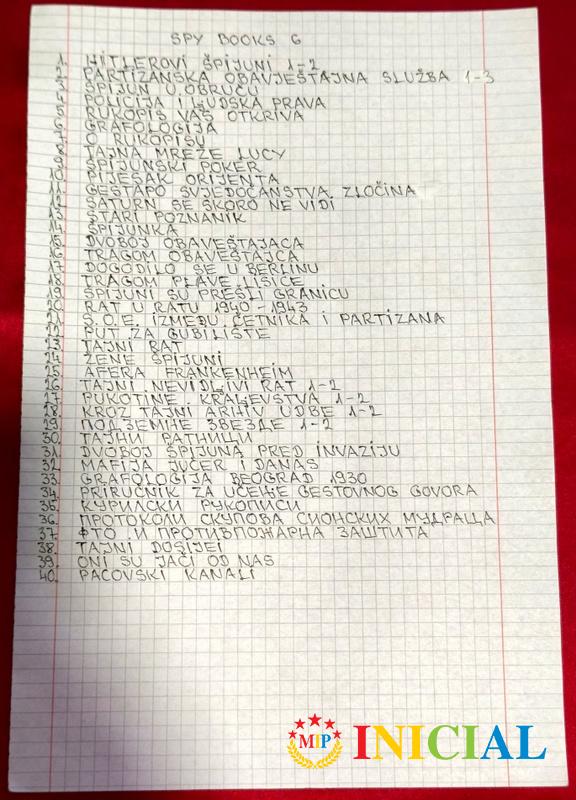 SPY BOOKS 6
1. HITLEROVI ŠPIJUNI 1-2
2. PARTIZANSKA OBAVJEŠTAJNA SLUŽBA 1-3
3. ŠPIJUN U OBRUČU
4. POLICIJA I LJUDSKA PRAVA
5. RUKOPIS VAS OTKRIVA
6. GRAFOLOGIJA
7. O RUKOPISU
8. TAJNA MREŽE LUCY
9. ŠPIJUNSKI POKER
10. PIJESAK ORIJENTA
11. GESTAPO SVJEDOČANSTVA ZLOČINA
12. SATURN SE SKORO NE VIDI
13. STARI POZNANIK
14. ŠPIJUNKA
15. DVOBOJ OBAVEŠTAJACA
16. TRAGOM OBAVEŠTAJCA
17. DOGODILO SE U BERLINU
18. TRAGOM PLAVE LISICE
19. ŠPIJUNI SU PREŠLI GRANICU
20. RAT U RATU 1940-1943
21. S.O.E. IZMEĐU ČETNIKA I PARTIZANA
22. PUT ZA GUBILIŠTE
23. TAJNI RAT
24. ŽENE ŠPIJUNI
25. AFERA FRANKENHEIM
26. TAJNI NEVIDLJIVI RAT 1-2
27. PUKOTINE KRALJEVSTVA 1-2
28. KROZ TAJNI ARHIV UDBE 1-2
29. ПОДЗЕМНЕ ЗВЕЗДЕ 1-2
30. ТАЈНИ РАТНИЦИ
31. DVOBOJ ŠPIJUNA PRED INVAZIJU
32. MAFIJA JUČER I DANAS
33. GRAFOLOGIJA BEOGRAD 1930
34. PRIRUČNIK ZA UČENJE GESTOVNOG GOVORA
35. КУРИЛСКИ РУКОПИСИ
36. ПРОТОКОЛИ СКУПОВА СИОНСКИХ МУДРАЦА
37. ФТО И ПРОТИВПОЖАРНА ЗАШТИТА
38. TAJNI DOSIJEI
39. ONI SU JAČI OD NAS
40. PACOVSKI KANALI
MIP INICIAL